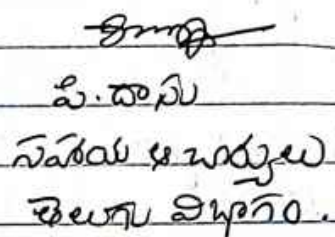 పి. దాసు
సహాయ ఆచార్యులు
తెలుగు విభాగం.